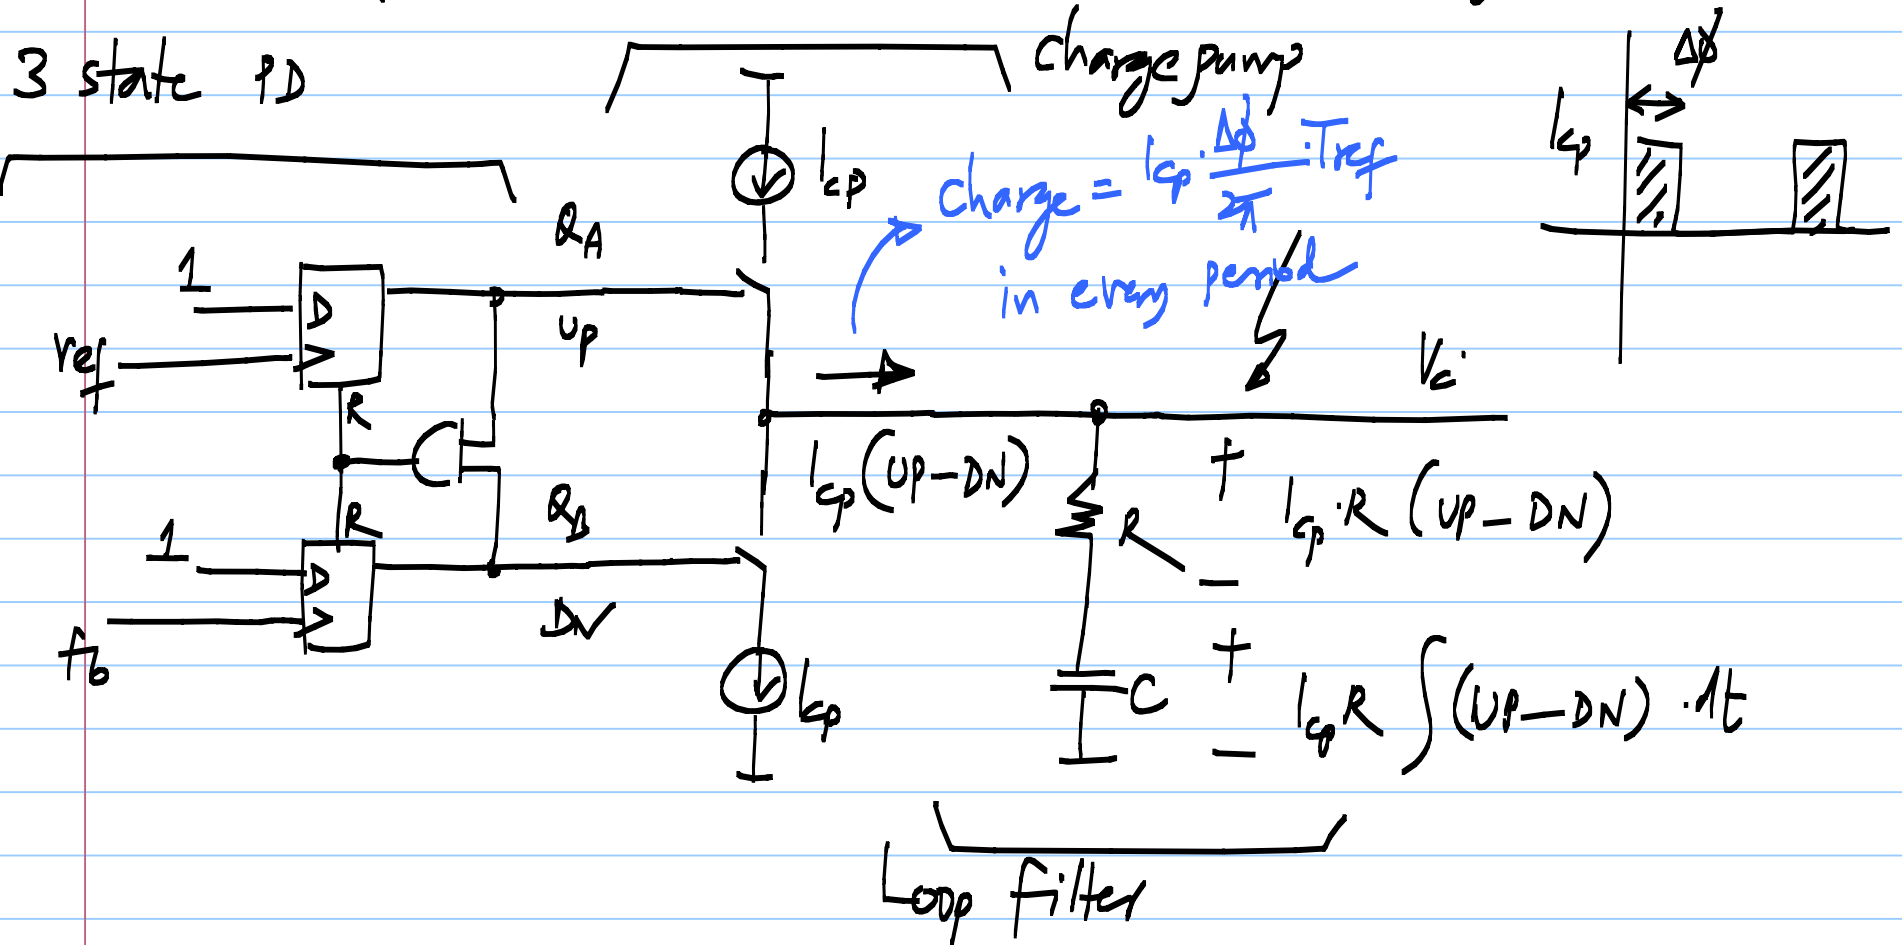 3 state PD
Charge pump
Δϕ
Icp
Icp
charge = Icp · Δϕ/2π · Tref
in every period
QA
1
D
UP
ref
R
Vc
Icp (UP-DN)
+
Icp·R (UP-DN)
R
-
QB
R
1
D
DN
fb
Icp
C
+
Icp R ∫(UP-DN) · dt
-
Loop filter